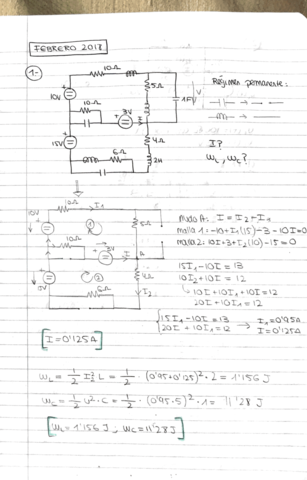 FEBRERO 2013
1-
10Ω
5Ω
1F
V
10V
10Ω
3V
15V
6Ω
4Ω
2H
Régimen permanente:
I?
WL, WC?
10Ω
I1
10V
1
5Ω
10Ω
3V
A
2
4Ω
I2
15V
6Ω
Nudo A: I = I2 - I1
malla 1: -10+I1(15)-3-10I=0
malla 2: 10I+3+I2(10)-15=0
15I1-10I=13
10I2+10I=12
10I+10I1+10I=12
20I+10I1=12
15I1-10I=13
20I+10I1=12
I1=0'95A
I=0'125A
[I=0'125A]
WL = 1/2 I2² L = 1/2 · (0'95+0'125)² · 2 = 1'156 J
WC = 1/2 V² · C = 1/2 · (0'95·5)² · 1 = 11'28 J
[WL=1'156 J ; WC=11'28 J]